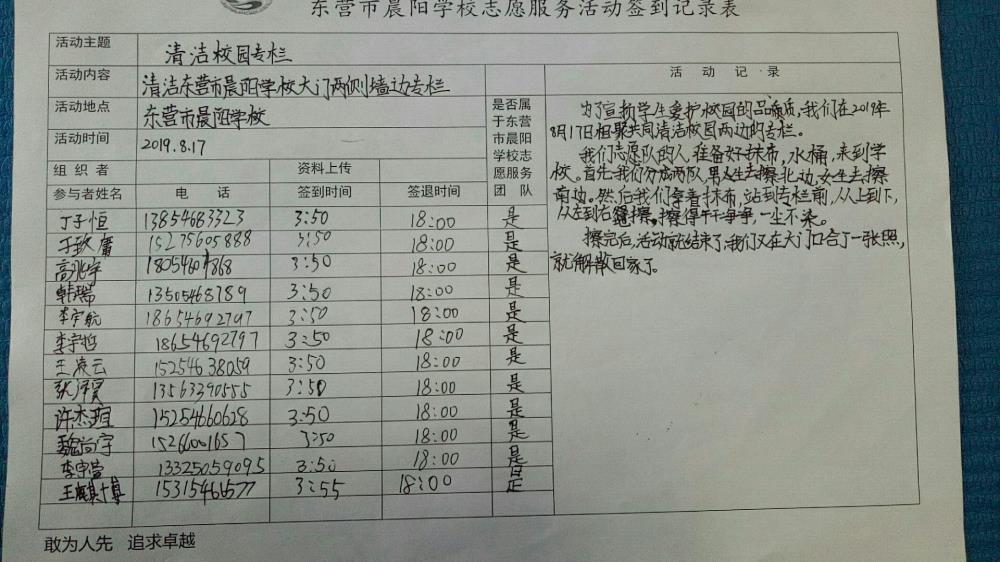 东营市晨阳学校志愿服务活动签到记录表
活动主题 清洁校园专栏
活动内容 清洁东营市晨阳学校大门两侧墙边专栏
活动地点 东营市晨阳学校
活动时间 2019.8.17
组织者 资料上传
参与者姓名 电话 签到时间 签退时间
是否属
于东营
市晨阳
学校志
愿服务
团队
丁子恒 13854683323 3:50 18:00 是
15275605888 3:50 18:00 是
高兆宇 3:50 18:00 是
韩瑞 13505468789 3:50 18:00 是
李宇航 18654692797 3:50 18:00 是
李宇哲 18654692797 3:50 18:00 是
王凌云 15254638059 3:50 18:00 是
13563390555 3:50 18:00 是
许杰瑄 15254660628 3:50 18:00 是
魏尚宇 15266001657 3:50 18:00 是
李宇萱 13325059095 3:50 18:00 是
15315466577 3:55 18:00 是
活动记录
为了宣扬学生爱护校园的品质,我们在2019年
8月17日相聚共同清洁校园两边的专栏。
我们志愿队的人,准备好抹布,水桶,来到学
校。首先我们分成两队,男生去擦北边,女生去擦
南边。然后我们拿着抹布,站到专栏前,从上到下,
从左到右擦,擦得干干净净,一尘不染。
擦完后,活动就结束了,我们又在大门口合了一张照,
就解散回家了。
敢为人先 追求卓越